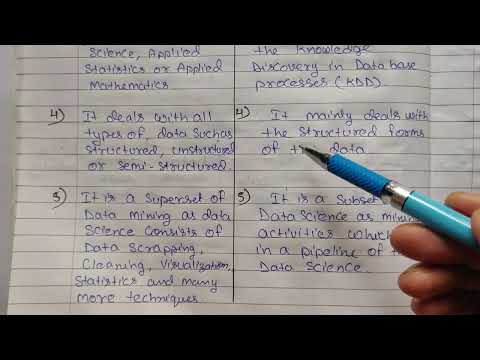 Science, Applied
Statistics or Applied
Mathematics
4) It deals with all
types of data such as
Structured, unstructured
or semi-structured.
5) It is a Superset of
Data mining as data
Science consists of
Data Scrapping,
Cleaning, Visualization,
Statistics and many
more techniques
the Knowledge
Discovery in Database
processes (KDD)
4) It mainly deals with
the Structured forms
of data
5) It is a Subset
Data Science as
activities which
in a pipeline of
Data Science.